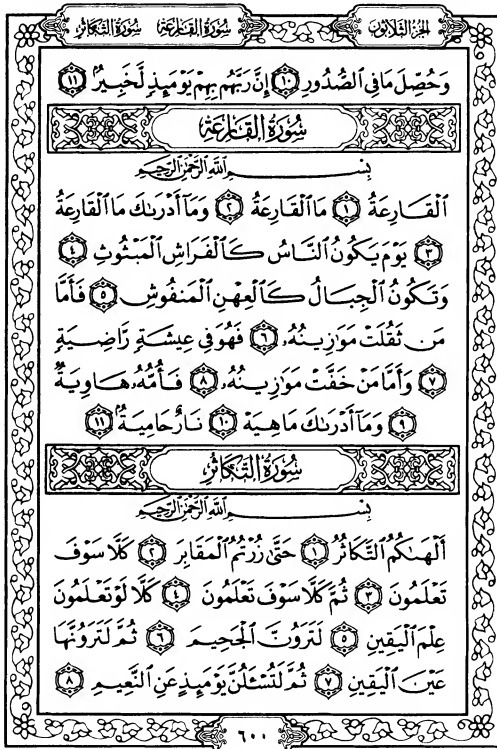 سُورَةُ القَارِعَةِ سُورَةُ التَّكَاثُرِ الجُزْءُ الثَّلَاثُونَ
وَحُصِّلَ مَا فِي ٱلصُّدُورِ ١٠ إِنَّ رَبَّهُم بِهِمْ يَوْمَئِذٍ لَّخَبِيرٌۢ ١١
سُورَةُ القَارِعَةِ
بِسْمِ ٱللَّهِ ٱلرَّحْمَٰنِ ٱلرَّحِيمِ
ٱلْقَارِعَةُ ١ مَا ٱلْقَارِعَةُ ٢ وَمَآ أَدْرَىٰكَ مَا ٱلْقَارِعَةُ
٣ يَوْمَ يَكُونُ ٱلنَّاسُ كَٱلْفَرَاشِ ٱلْمَبْثُوثِ ٤
وَتَكُونُ ٱلْجِبَالُ كَٱلْعِهْنِ ٱلْمَنفُوشِ ٥ فَأَمَّا
مَن ثَقُلَتْ مَوَٰزِينُهُۥ ٦ فَهُوَ فِي عِيشَةٍ رَّاضِيَةٍ
٧ وَأَمَّا مَنْ خَفَّتْ مَوَٰزِينُهُۥ ٨ فَأُمُّهُۥ هَاوِيَةٌ
٩ وَمَآ أَدْرَىٰكَ مَا هِيَهْ ١٠ نَارٌ حَامِيَةٌۢ ١١
سُورَةُ التَّكَاثُرِ
بِسْمِ ٱللَّهِ ٱلرَّحْمَٰنِ ٱلرَّحِيمِ
أَلْهَىٰكُمُ ٱلتَّكَاثُرُ ١ حَتَّىٰ زُرْتُمُ ٱلْمَقَابِرَ ٢ كَلَّا سَوْفَ
تَعْلَمُونَ ٣ ثُمَّ كَلَّا سَوْفَ تَعْلَمُونَ ٤ كَلَّا لَوْ تَعْلَمُونَ
عِلْمَ ٱلْيَقِينِ ٥ لَتَرَوُنَّ ٱلْجَحِيمَ ٦ ثُمَّ لَتَرَوُنَّهَا
عَيْنَ ٱلْيَقِينِ ٧ ثُمَّ لَتُسْـَٔلُنَّ يَوْمَئِذٍ عَنِ ٱلنَّعِيمِ ٨
٦٠٠